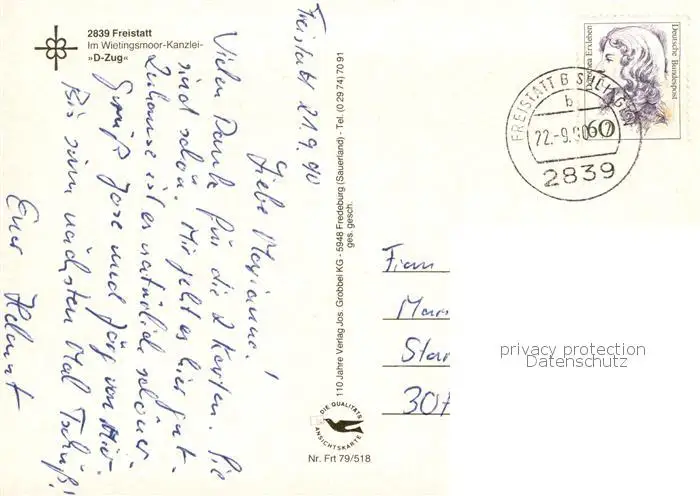 2839 Freistatt
Im Wietingsmoor-Kanzlei-
»D-Zug«
Freistatt 21.9.90
Liebe Marianne!
Vielen Dank für die 2 Karten. Sie
sind schön. Mir geht es hier gut.
Zuhause ist es natürlich schöner.
Grüß Jose und Jörg von Mir
Bis zum nächsten Mal Tschüß!
Euer Helmut
110 Jahre Verlag Jos. Grobbel KG - 5948 Fredeburg (Sauerland) - Tel. (0 29 74) 70 91
ges. gesch.
DIE QUALITÄTS
ANSICHTSKARTE
Nr. Frt 79/518
Erxleben
Deutsche Bundespost
60
FREISTATT B SULINGEN
b
22.-9.90
2839
Frau
Mar
Star
307
privacy protection
Datenschutz